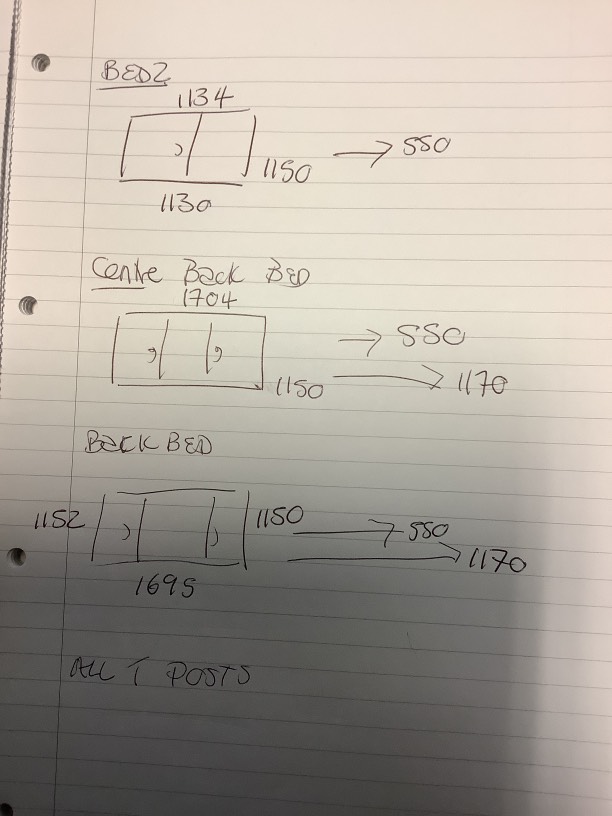 BED2
1134
1150 → 550
1130
Centre Back BED
1704
→ 550
1150 → 1170
BACK BED
1152 1150 → 550
→ 1170
1695
ALL T POSTS